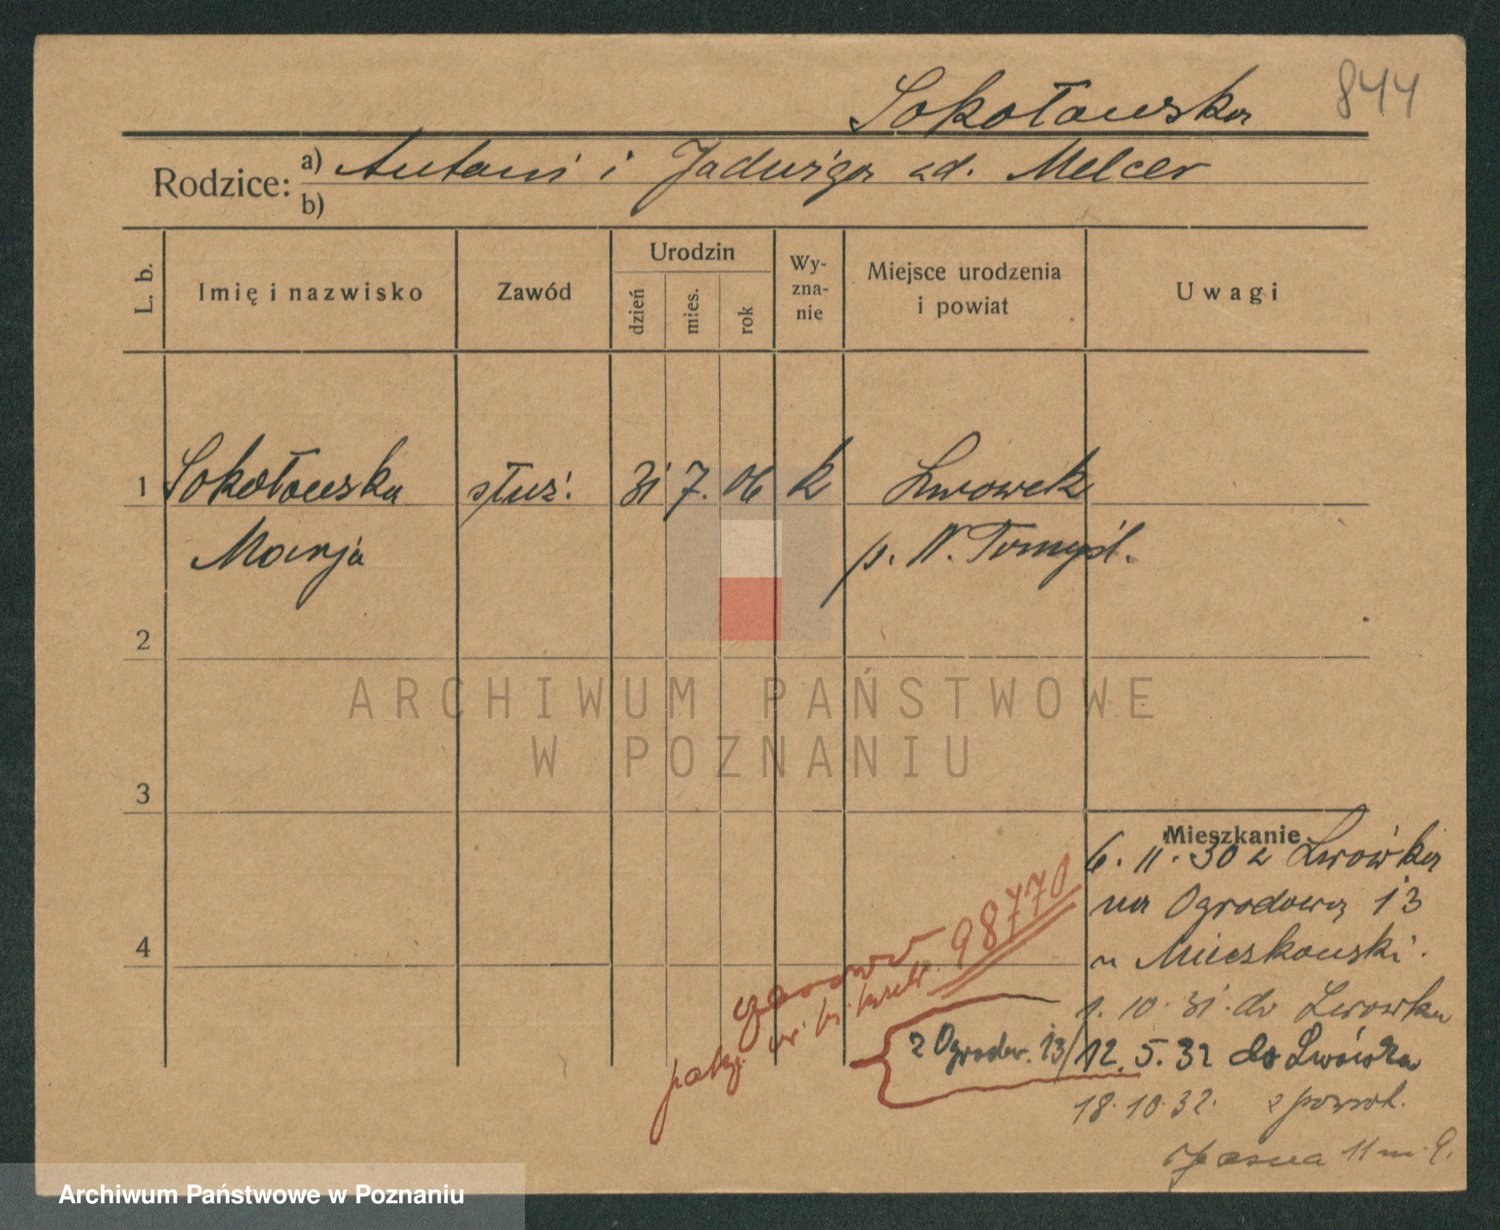 844
Sokołowska
Rodzice: a) Antoni i Jadwiga zd. Melcer
b)
L. b.
Imię i nazwisko
Zawód
Urodzin
dzień
mies.
rok
Wy-
zna-
nie
Miejsce urodzenia
i powiat
Uwagi
1 Sokołowska służ. 31 7. 06 k Lwowek
Marja p. N. Tomyśl.
2
ARCHIWUM PAŃSTWOWE
W POZNANIU
3
Mieszkanie
6. 11. 30 z Lwówka
na Ogrodową 13
4
u Mieszkowski.
98770
1. 10. 31. do Lwowka
z Ogrodow. 13/12. 5. 32 do Lwówka
18. 10. 32. z powrot.
Jasna 11 m. 9.
Archiwum Państwowe w Poznaniu